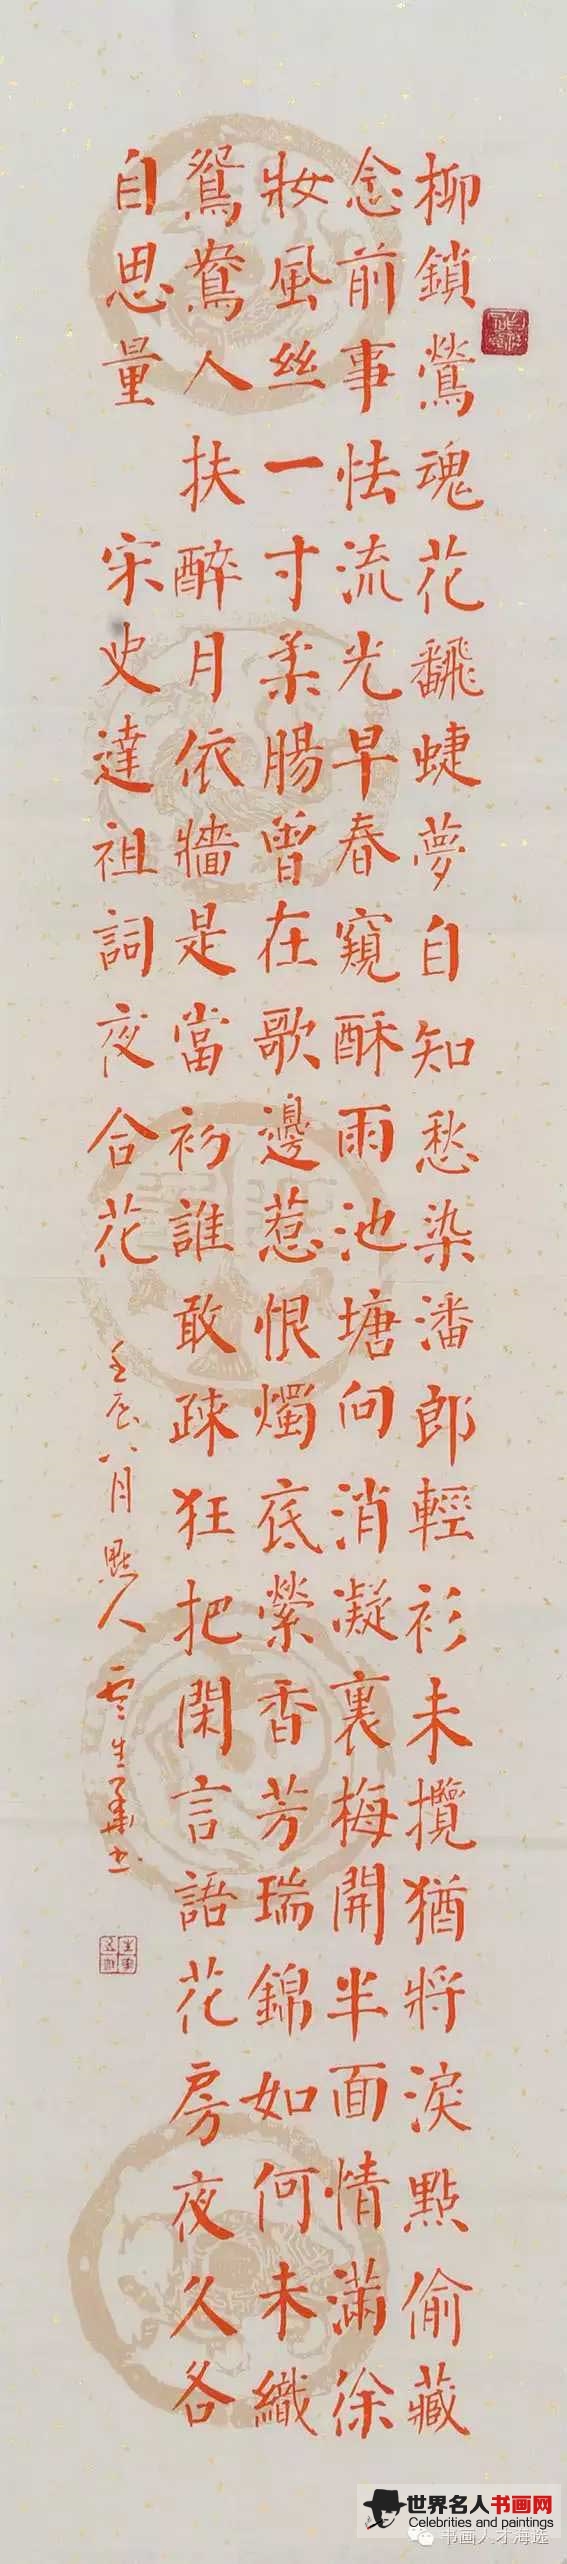 柳鎖鶯魂花飜蜨夢自知愁染潘郎輕衫未攬猶將淚點偷藏
念前事怯流光早春窺酥雨池塘向消凝裏梅開半面情滿徐
妝風絲一寸柔腸曾在歌邊惹恨燭底縈香芳瑞錦如何未織
鴛鴦人扶醉月依牆是當初誰敢疎狂把閑言語花房夜久各
自思量 宋史達祖詞夜合花 壬辰八月
世界名人书画网
Celebrities and paintings
书画人才海选